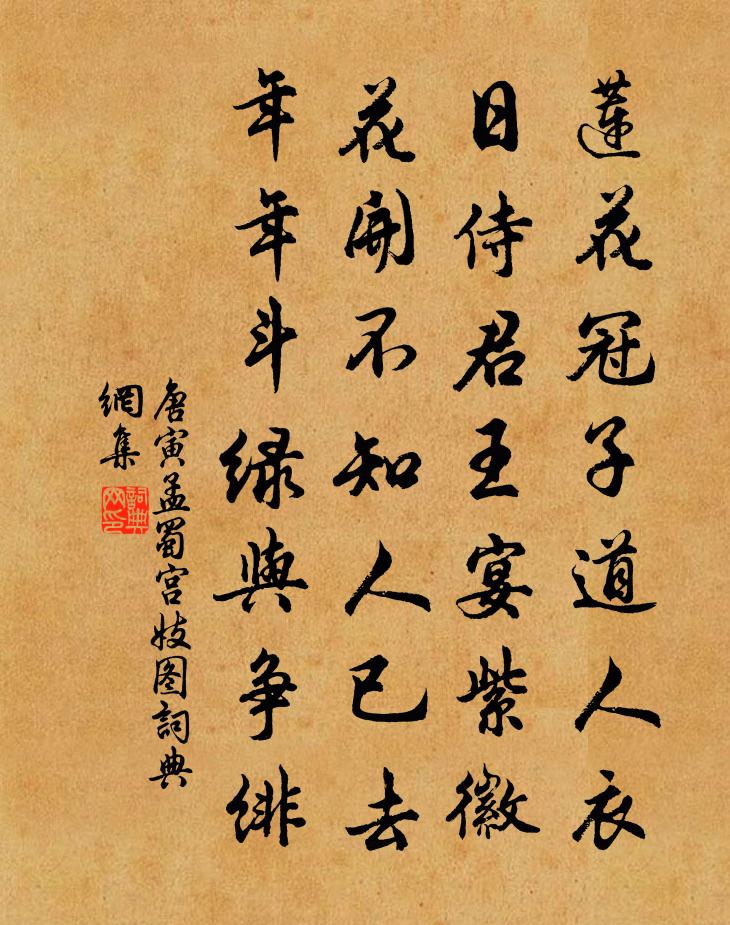 蓮花冠子道人衣
日侍君王宴紫徽
花開不知人已去
年年斗緑與争緋
唐寅孟蜀宫妓图詞典
網集
詞典
网印